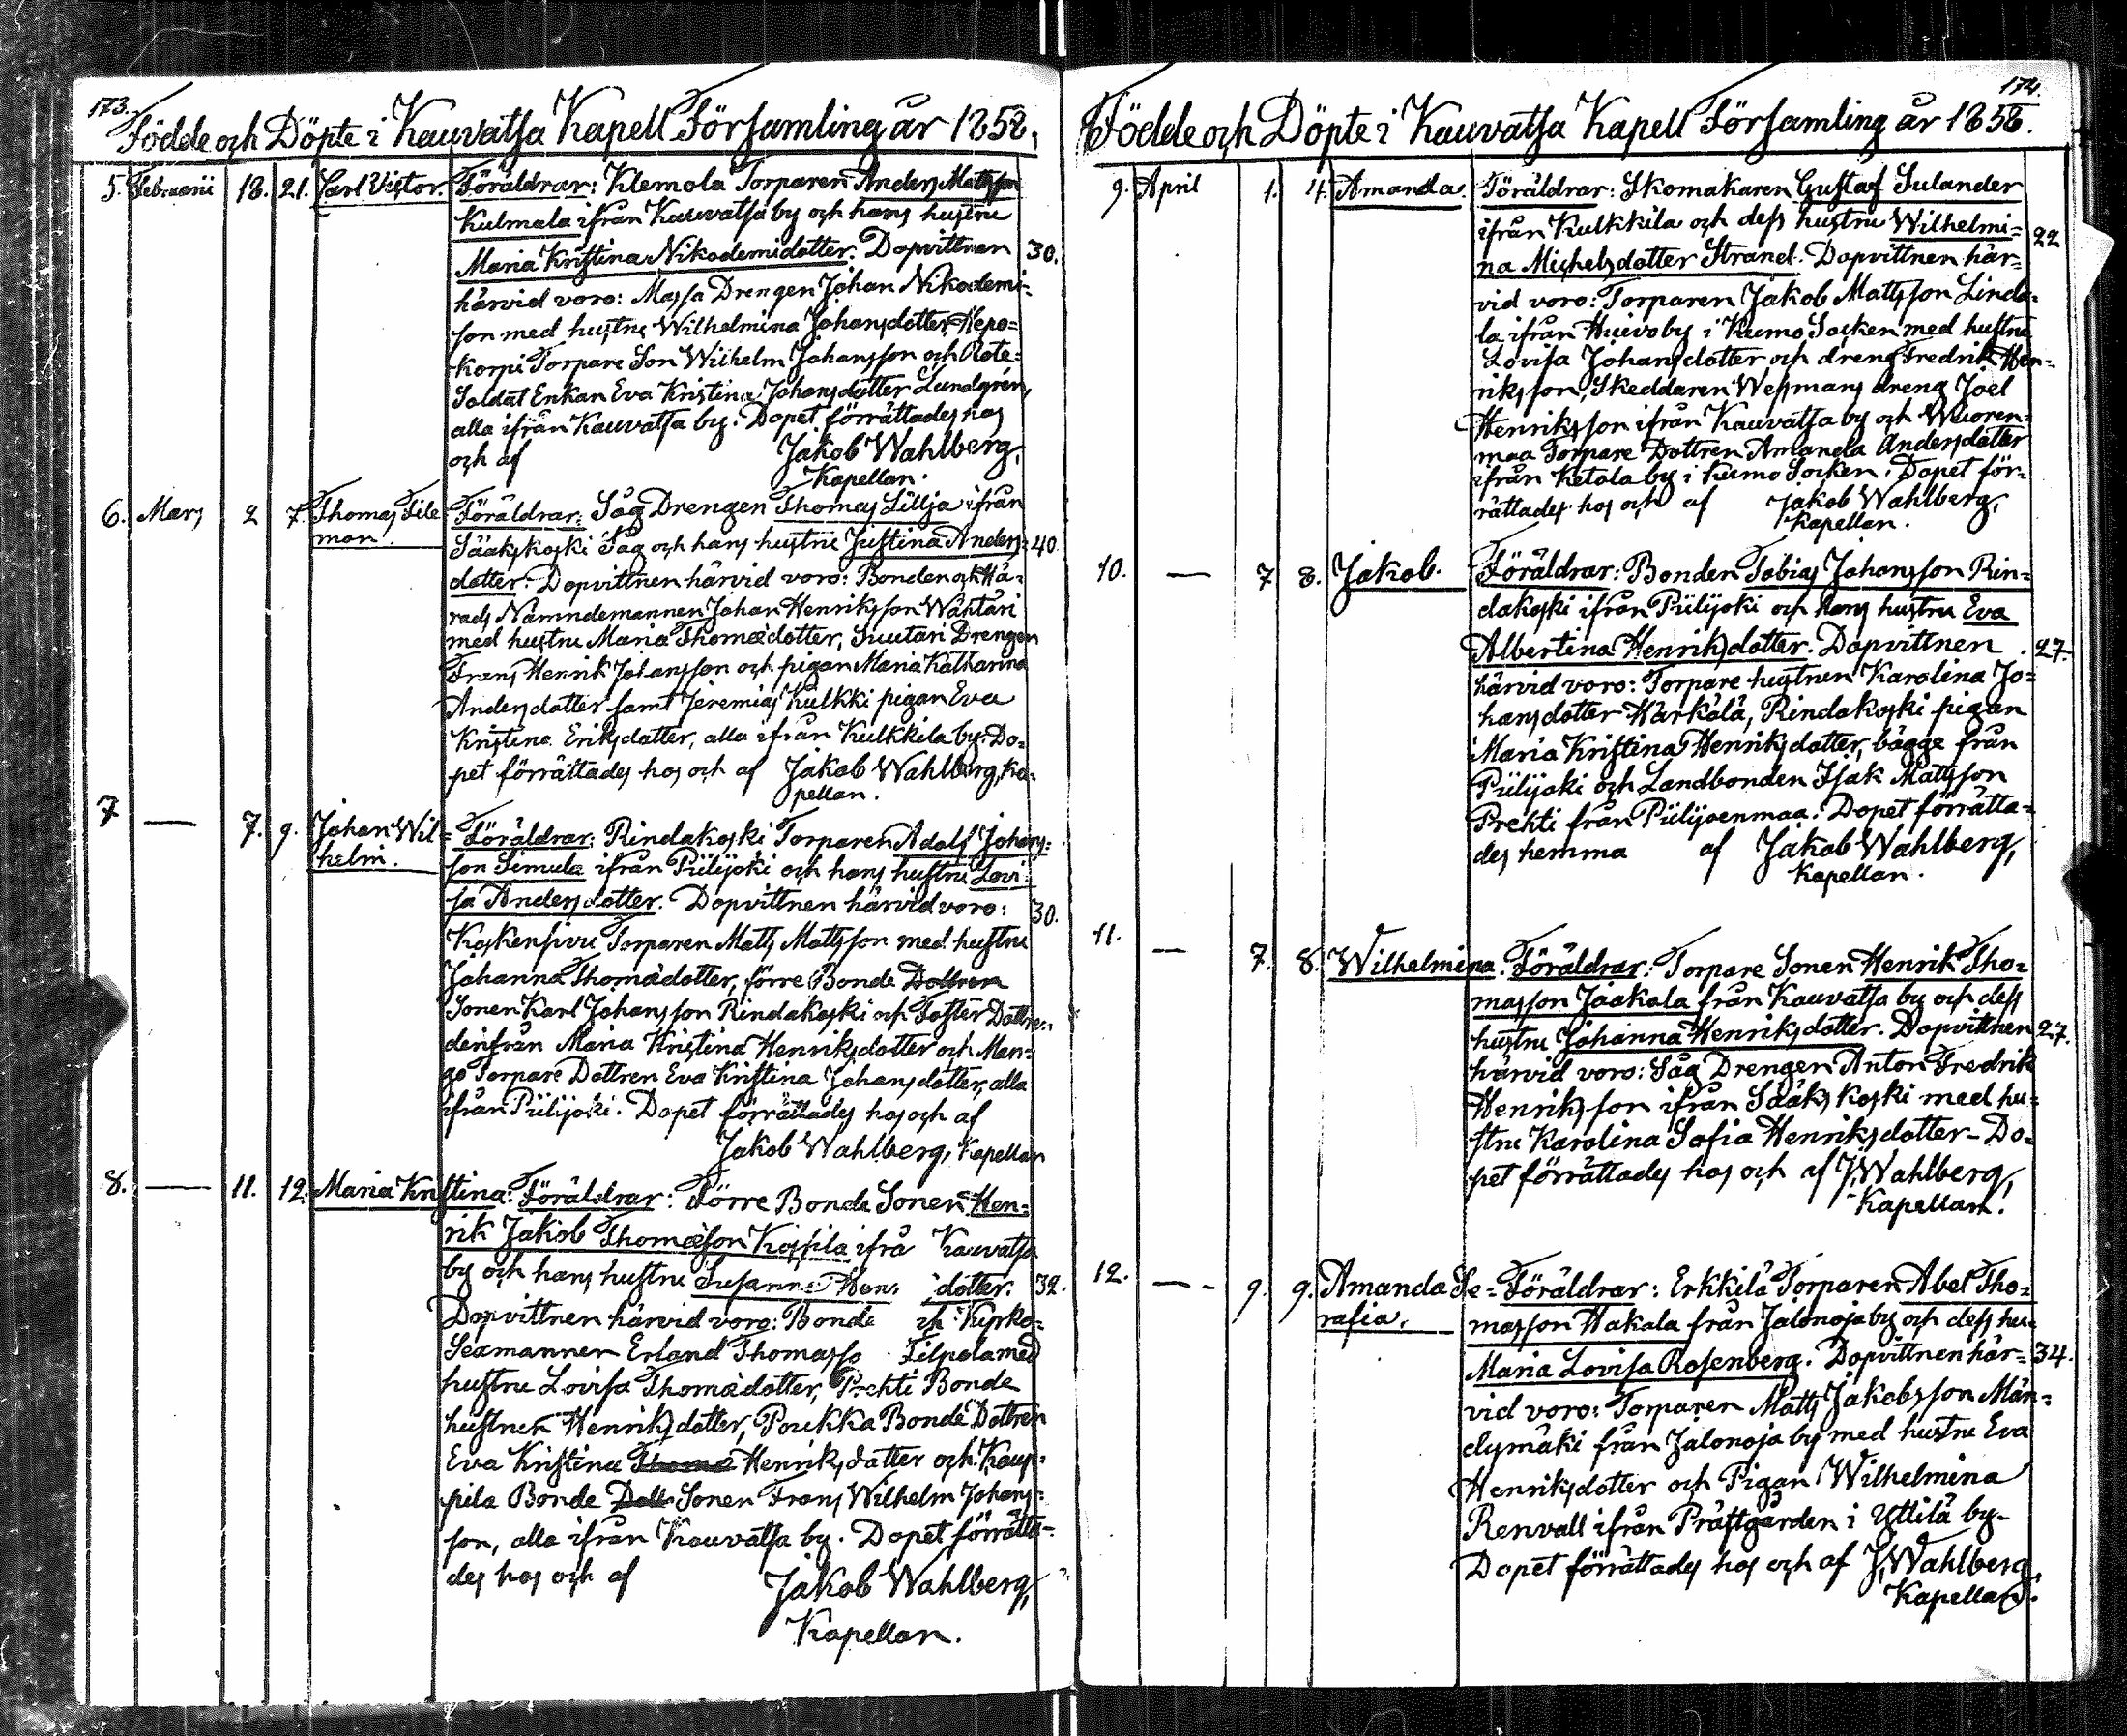 173.
Födde och Döpte i Kauvatsa Kapell Församling år 1858.
5. Februarii 18. 21. Carl Victor. Föräldrar: Klemola Torparen Anders Mattsson
Kulmala ifrån Kauvatsa by och hans hustru
Maria Kristina Nikodemidotter. Dopvittnen 30.
härvid voro: Massa Drengen Johan Nikodemi-
son med hustru Wilhelmina Johansdotter, Hepo=
korpi Torpare Son Wilhelm Johansson och Rote=
Soldat Enkan Eva Kristina Johansdotter Lundgrén,
alla ifrån Kauvatsa by. Dopet förrättades hos
och af Jakob Wahlberg,
Kapellan.
6. Mars 2 7. Thomas File= Föräldrar: Såg Drengen Thomas Lillja ifrån
mon. Sääkskoski Såg och hans hustru Justina Anders= 40.
dotter. Dopvittnen härvid voro: Bonden och Hä-
rads Nämndemannen Johan Henriksson Wähtäri
med hustru Maria Thomædotter, Suutari Drengen
Frans Henrik Johansson och pigan Maria Katharina
Andersdotter samt Jeremias Kulkki pigan Eva
Kristina Eriksdotter, alla ifrån Kulkkila by. Do=
pet förrättades hos och af Jakob Wahlberg, Ka-
pellan.
7 — 7. 9. Johan Wil= Föräldrar: Rindakoski Torparen Adolf Johans=
helm. son Simula ifrån Piilijoki och hans hustru Lovi=
sa Andersdotter. Dopvittnen härvid voro: 30.
Koskensivu Torparen Matts Mattsson med hustru
Johanna Thomædotter, förre Bonde Dottren
Sonen Karl Johansson Rindakoski och Foster Dottren
derifrån Maria Kristina Henriksdotter och Man=
go Torpare Dottren Eva Kristina Johansdotter, alla
ifrån Piilijoki. Dopet förrättades hos och af
Jakob Wahlberg, Kapellan
8. — 11. 12. Maria Kristina. Föräldrar: Förre Bonde Sonen Hen=
rik Jakob Thomæson ifrå Kauvatsa
by och hans hustru Susanna Hen dotter. 32.
Dopvittnen härvid voro: Bonde ch Kyrko=
Sexmannen Erland Thomasso Filpola med
hustru Lovisa Thomædotter, Prekti Bonde
hustrun Henriksdotter, Poukka Bonde Dottren
Eva Kristina Thomæ Henriksdotter och Kaup=
pila Bonde Dott Sonen Frans Wilhelm Johans=
son, alla ifrån Kauvatsa by. Dopet förrätta-
des hos och af Jakob Wahlberg,
Kapellan.
174.
Födde och Döpte i Kauvatsa Kapell Församling år 1858.
9. April 1. 4. Amanda. Föräldrar: Skomakaren Gustaf Sulander
ifrån Kulkkila och dess hustru Wilhelmi= 22
na Michelsdotter Strand. Dopvittnen här=
vid voro: Torparen Jakob Mattsson Linda=
la ifrån Huivoby i Kumo Socken med hustru
Lovisa Johansdotter och dreng Fredrik Hen=
riksson, Skeddaren Wessmans dreng Joel
Henriksson ifrån Kauvatsa by och Wuoren=
maa Torpare Dottren Amanda Andersdotter
ifrån Ketola by i Kumo Socken. Dopet för-
rättades hos och af Jakob Wahlberg,
Kapellan.
10. — 7 8. Jakob. Föräldrar: Bonden Tobias Johansson Rin=
dakoski ifrån Piilijoki och hans hustru Eva
Albertina Henriksdotter. Dopvittnen 27.
härvid voro: Torpare hustrun Karolina Jo=
hansdotter Härkälä, Rindakoski pigan
Maria Kristina Henriksdotter, bägge från
Piilijoki och Landbonden Isak Mattsson
Prekti från Piilijoenmaa. Dopet förrätta=
des hemma af Jakob Wahlberg,
Kapellan.
11. — 7. 8. Wilhelmina. Föräldrar: Torpare Sonen Henrik Tho=
masson Jaakola från Kauvatsa by och dess
hustru Johanna Henriksdotter. Dopvittnen 27.
härvid voro: Såg Drengen Anton Fredrik
Henriksson ifrån Sääkskoski med hu=
stru Karolina Sofia Henriksdotter - Do=
pet förrättades hos och af J. Wahlberg,
Kapellan.
12. — 9. 9. Amanda Se= Föräldrar: Erkkilä Torparen Abel Tho=
rafia. masson Hakala från Jalonoja by och dess hu.
Maria Lovisa Rosenberg. Dopvittnen här= 34.
vid voro: Torparen Matts Jakobsson Män=
dymäki från Jalonoja by med hustru Eva
Henriksdotter och Pigan Wilhelmina
Renvall ifrån Prästgården i Yttilä by-
Dopet förrättades hos och af J. Wahlberg
Kapellan.